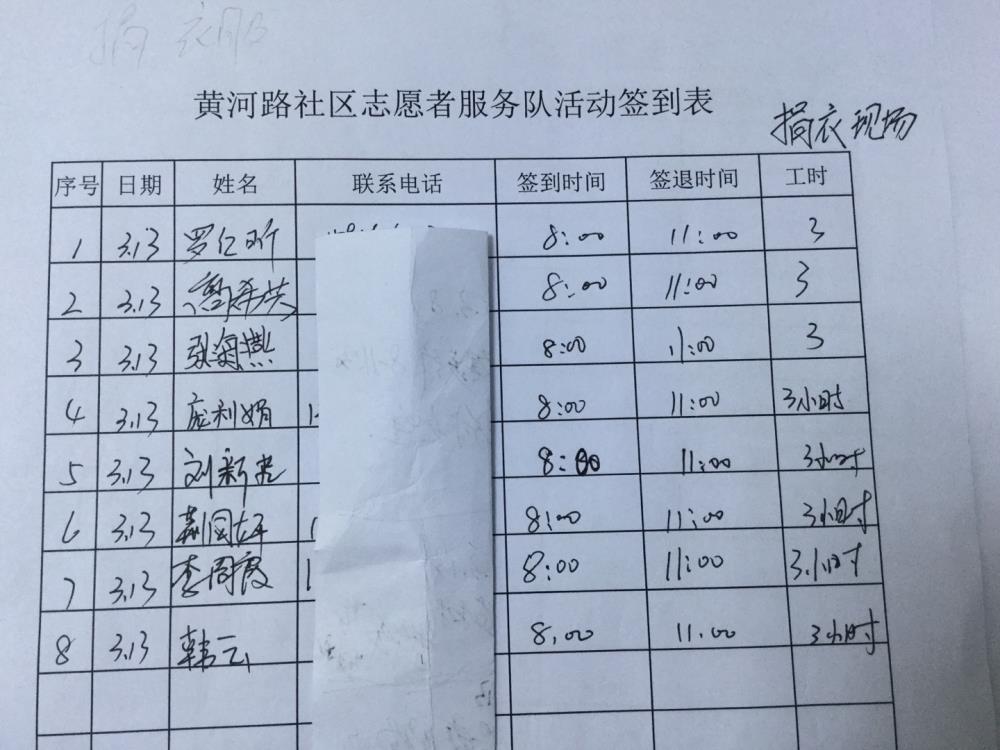 捐衣服
黄河路社区志愿者服务队活动签到表
捐衣现场
序号 日期 姓名 联系电话 签到时间 签退时间 工时
1 3.13 罗仁昕 8:00 11:00 3
2 3.13 8:00 11:00 3
3 3.13 8:00 11:00 3
4 3.13 庞利娟 8:00 11:00 3小时
5 3.13 刘新忠 8:00 11:00 3小时
6 3.13 8:00 11:00 3小时
7 3.13 李周霞 8:00 11:00 3小时
8 3.13 韩云 8.00 11.00 3小时